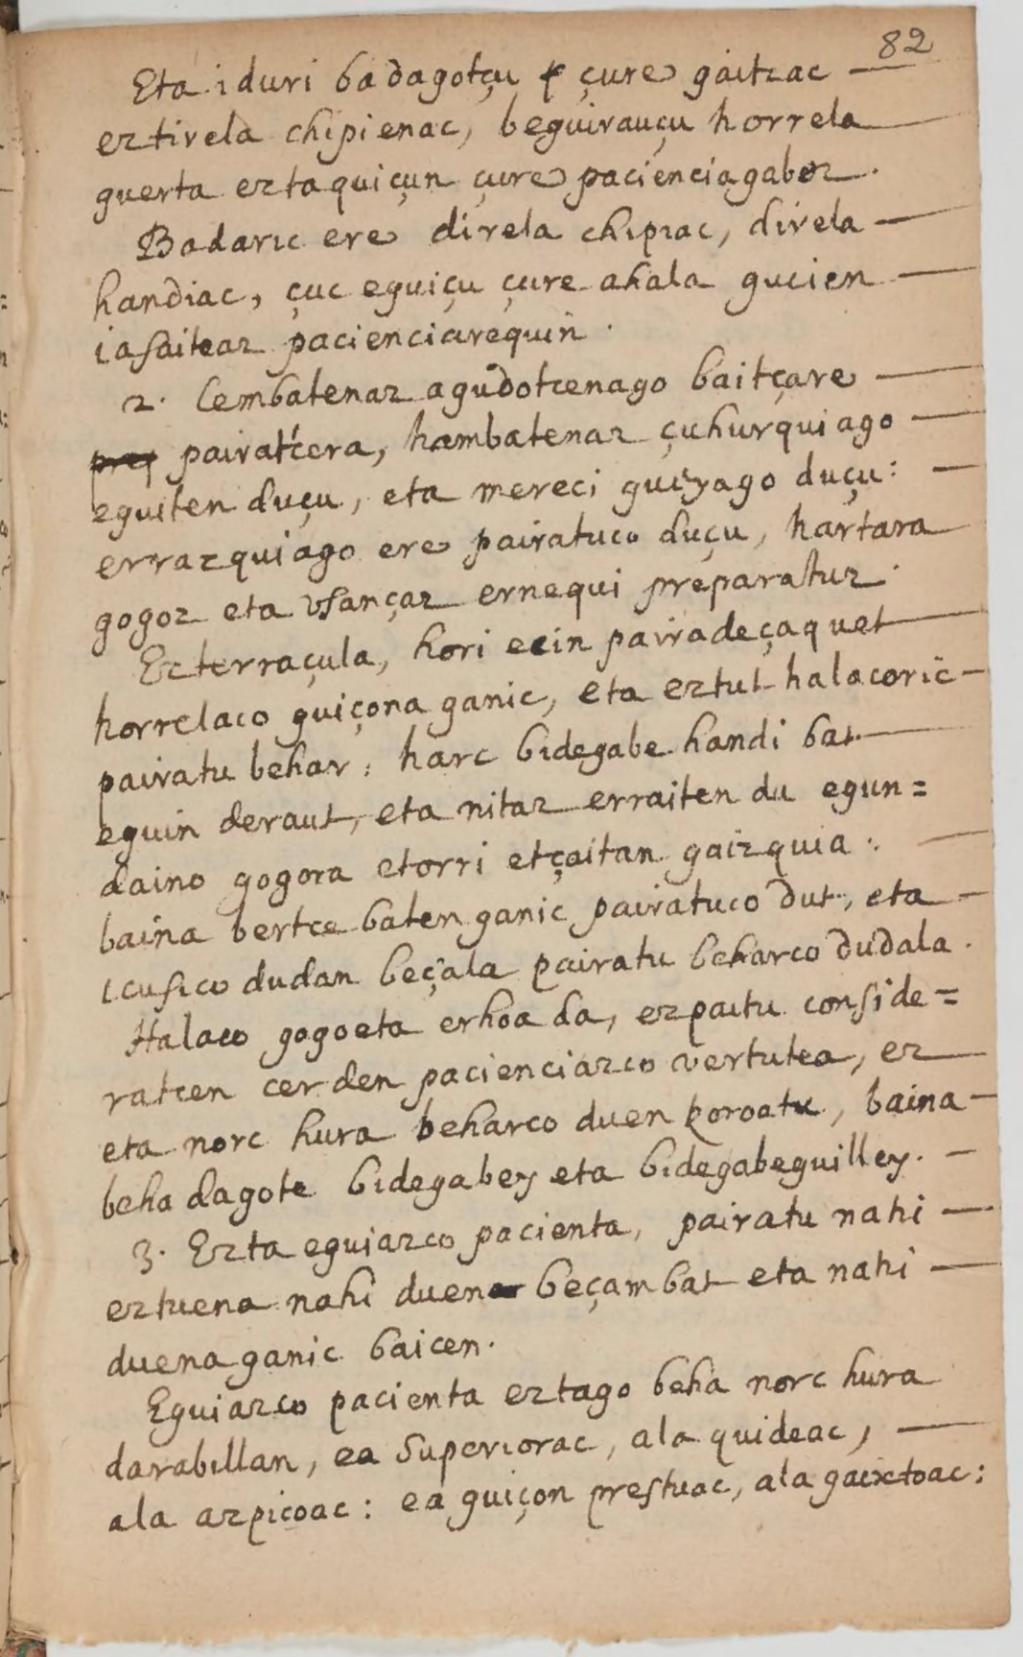 82
Eta iduri badagotçu çure gaitzac
eztirela chipienac, beguirauçu horrela
guerta eztaquiçun çure pacienciagabez.
Badaric ere direla chipiac, direla
handiac, çuc eguiçu çure ahala gucien
iasaiteaz pacienciarequin.
2. Cembatenaz agudotcenago baitçare
pairatcera, hambatenaz çuhurquiago
eguiten duçu, eta mereci guiyago duçu:
errazquiago ere pairatuco duçu, hartara
gogoz eta vsançaz ernequi preparatuz.
Ezterraçula, hori ecin pairadeçaquet
horrelaco guiçona ganic, eta eztut halacoric
pairatu behar: harc bidegabe handi bat
eguin deraut, eta nitaz erraiten du egun=
daino gogora etorri etçaitan gaizquia:
baina bertce baten ganic pairatuco dut, eta
icusico dudan beçala pairatu beharco dudala.
Halaco gogoeta erhoa da, ezpaitu conside=
ratcen cer den pacienciazco vertutea, ez
eta norc hura beharco duen koroatu, baina
beha dagote bidegabey eta bidegabeguilley.
3. Ezta eguiazco pacienta, pairatu nahi
eztuena nahi duena beçambat eta nahi
duena ganic baicen.
Eguiazco pacienta eztago beha norc hura
darabillan, ea Superiorac, ala quideac,
ala azpicoac: ea guiçon prestuac, ala gaixtoac: